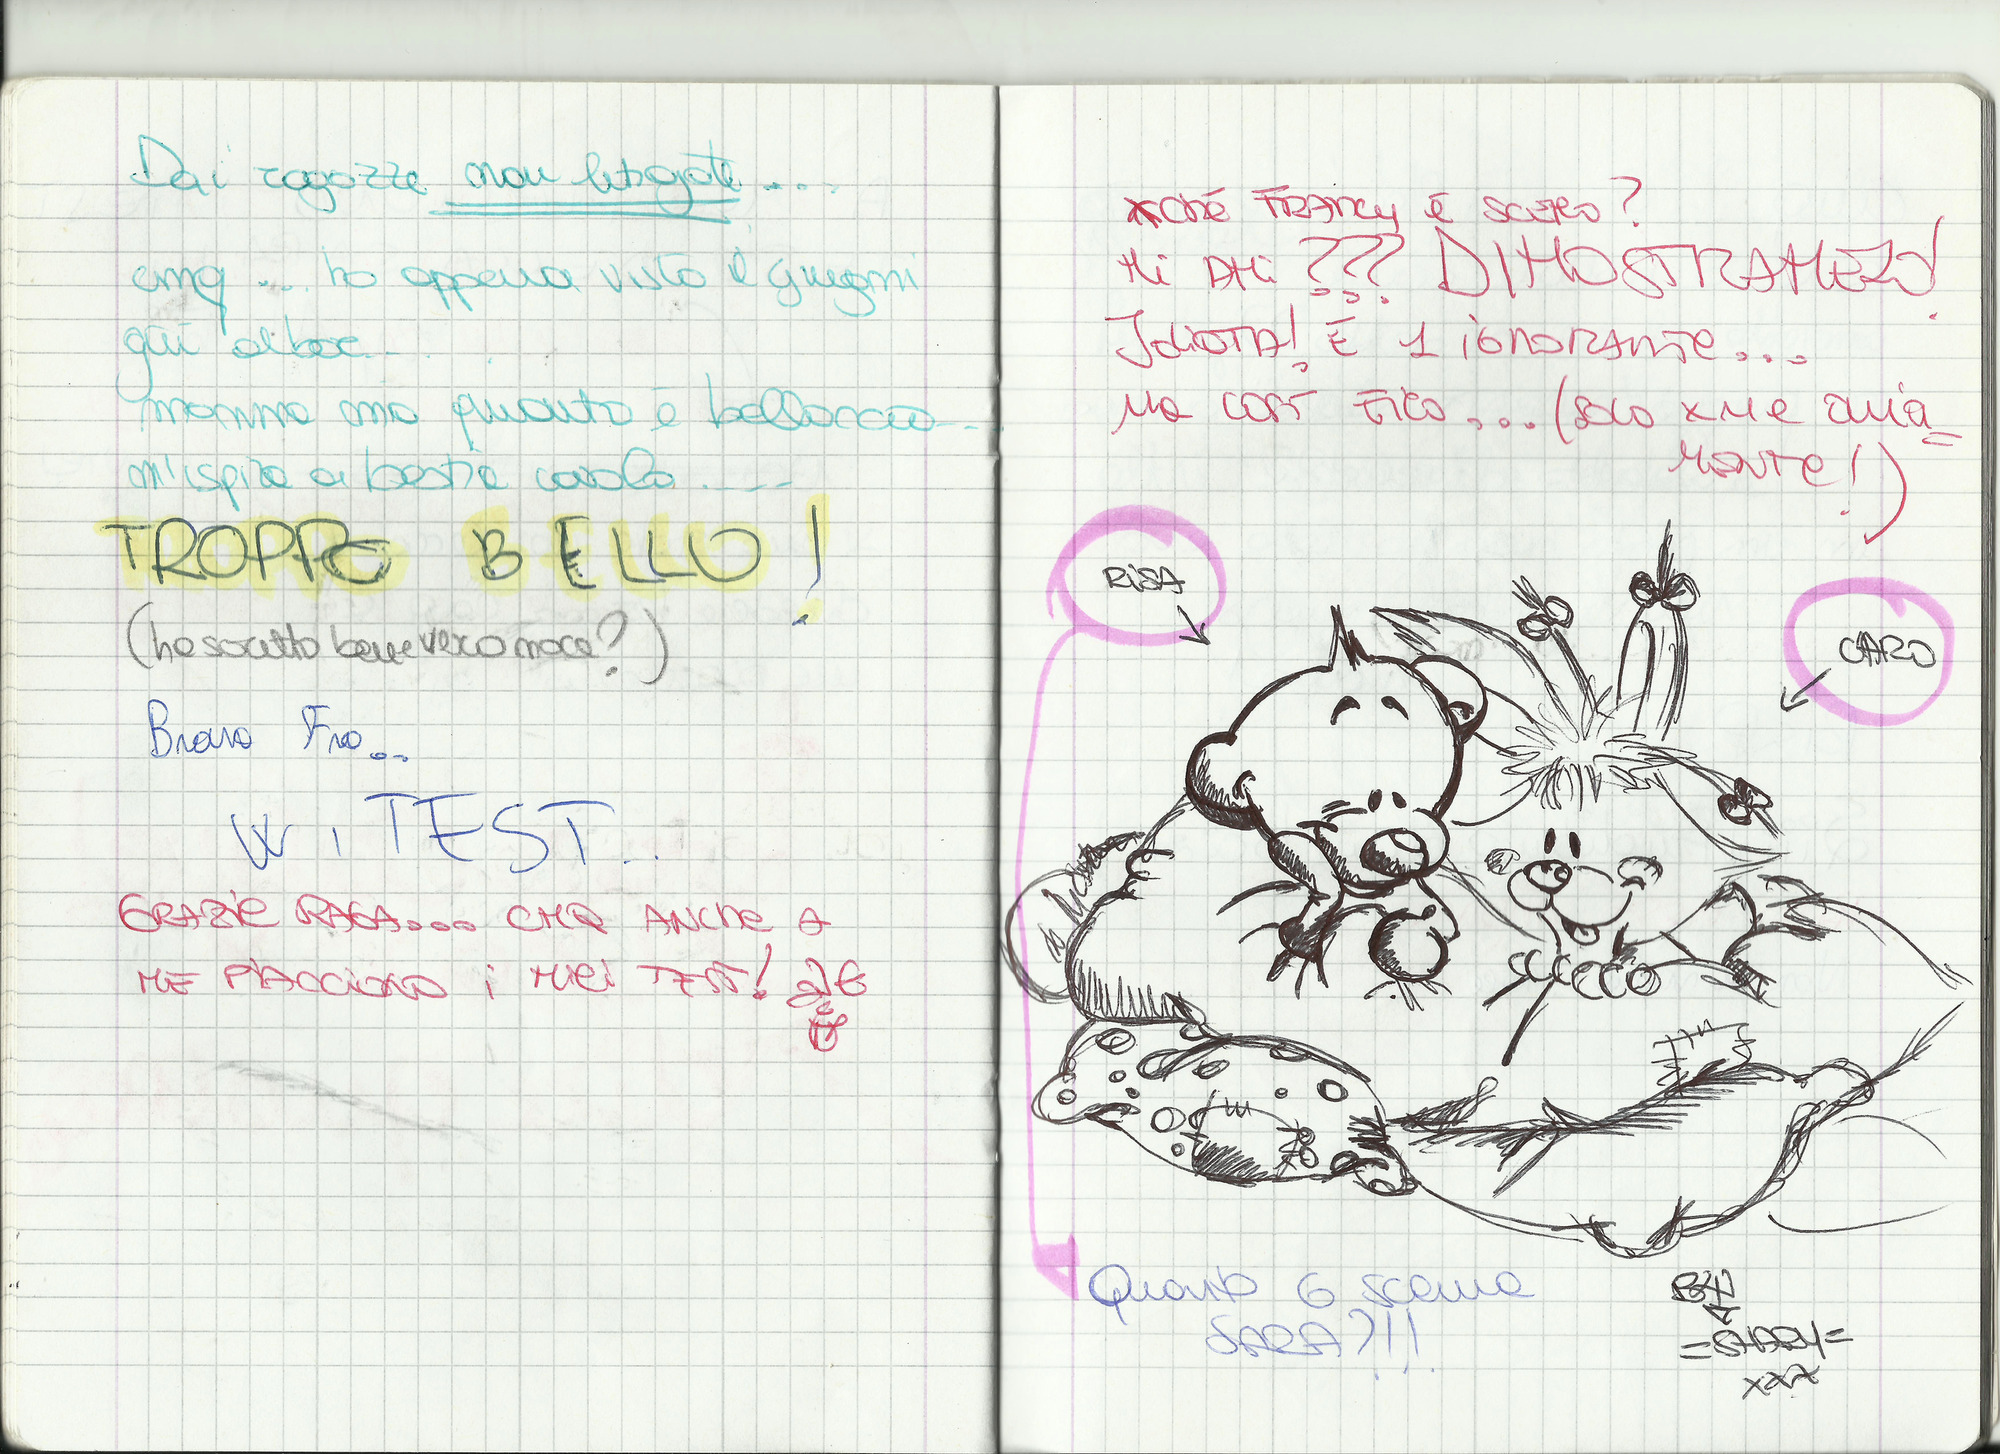 Dai ragazze non litigate....
cmq ... ho appena visto il
qui
mamma mia quanto è bellaccio...
m'ispira a bestia cavolo.....
TROPPO BELLO!
(ho scritto bene vero noce?)
Brava Fra...
W i TEST..
GRAZIE RAGA.... CMQ ANCHE A
ME PIACCIONO i MIEI TEST!
xché FRANCY È SCEMO?
Mi DHi ??? DIMOSTRAMELO!
IdiOTA! È 1 iGNORANTE....
MA COSÌ FICO....(SOLO X ME OVVIA=
MENTE!)
RiSA
CARO
Quanto 6 scema
SARA?!!!
BY
=SHARY=
xxx